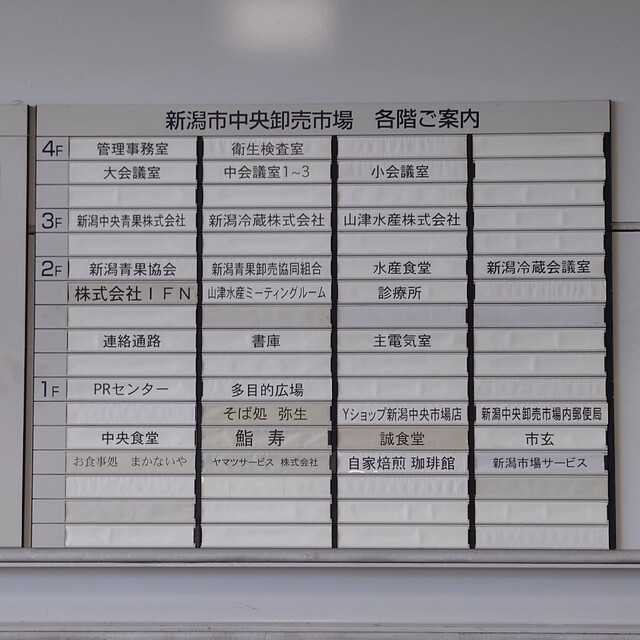 新潟市中央卸売市場　各階ご案内
4F 管理事務室 衛生検査室
大会議室 中会議室1~3 小会議室
3F 新潟中央青果株式会社 新潟冷蔵株式会社 山津水産株式会社
2F 新潟青果協会 新潟青果卸売協同組合 水産食堂 新潟冷蔵会議室
株式会社ＩＦＮ 山津水産ミーティングルーム 診療所
連絡通路 書庫 主電気室
1F PRセンター 多目的広場
そば処 弥生 Yショップ新潟中央市場店 新潟中央卸売市場内郵便局
中央食堂 鮨 寿 誠食堂 市玄
お食事処　まかないや ヤマツサービス 株式会社 自家焙煎 珈琲館 新潟市場サービス